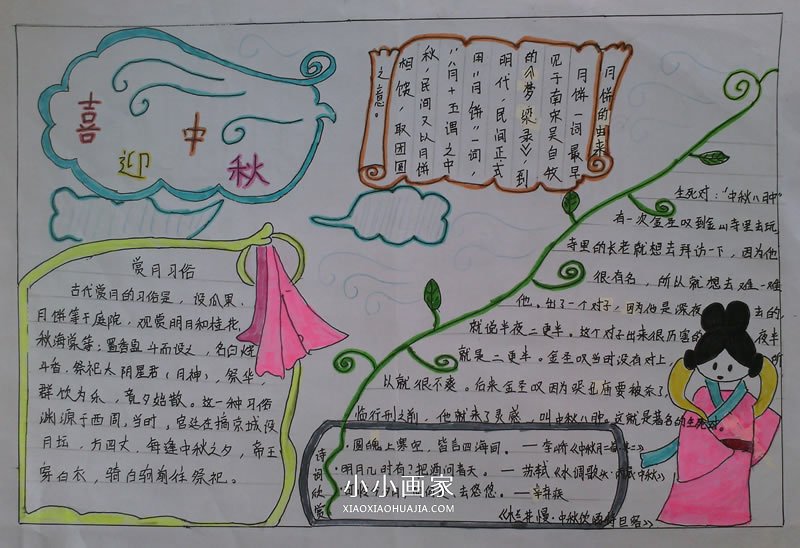 喜迎中秋
月饼的由来
月饼一词最早
见于南宋吴自牧
的《梦粱录》，到
明代，民间正式
用“月饼”一词，
“八月十五谓之中
秋，民间又以月饼
相馈，取团圆
之意。”
赏月习俗
古代赏月的习俗是，设瓜果、
月饼等于庭院，观赏明月和桂花、
秋海棠等；置香盘
斗香，祭祀太阴星君（月神），祭毕，
群饮为乐，竟夕始散。这一种习俗
渊源于西周，当时，宫廷在镐京城设
月坛，方四丈，每逢中秋之夕，帝王
穿白衣，骑白驹前往祭祀。
生死对：“中秋八月中”
有一次金圣叹到金山寺里去玩
寺里的长老就想去拜访一下，因为他
很有名，所以就想去难一难
他。出了一个对子，因为他是深夜去的
就说半夜二更半。这个对子出来很厉害的 夜半
就是二更半。金圣叹当时没有对上，所
以就很不爽。后来金圣叹因为哭丑庙要被杀了，
临行刑之前，他就来了灵感，叫中秋八月中。这就是著名的生死对
诗词欣赏
·圆魄上寒空，皆言四海同。——李峤《中秋月二首·其二》
·明月几时有？把酒问青天。——苏轼《水调歌头·丙辰中秋》
去悠悠。——辛弃疾
《木兰花慢·中秋饮酒将旦客》
小小画家
XIAOXIAOHUAJIA.COM